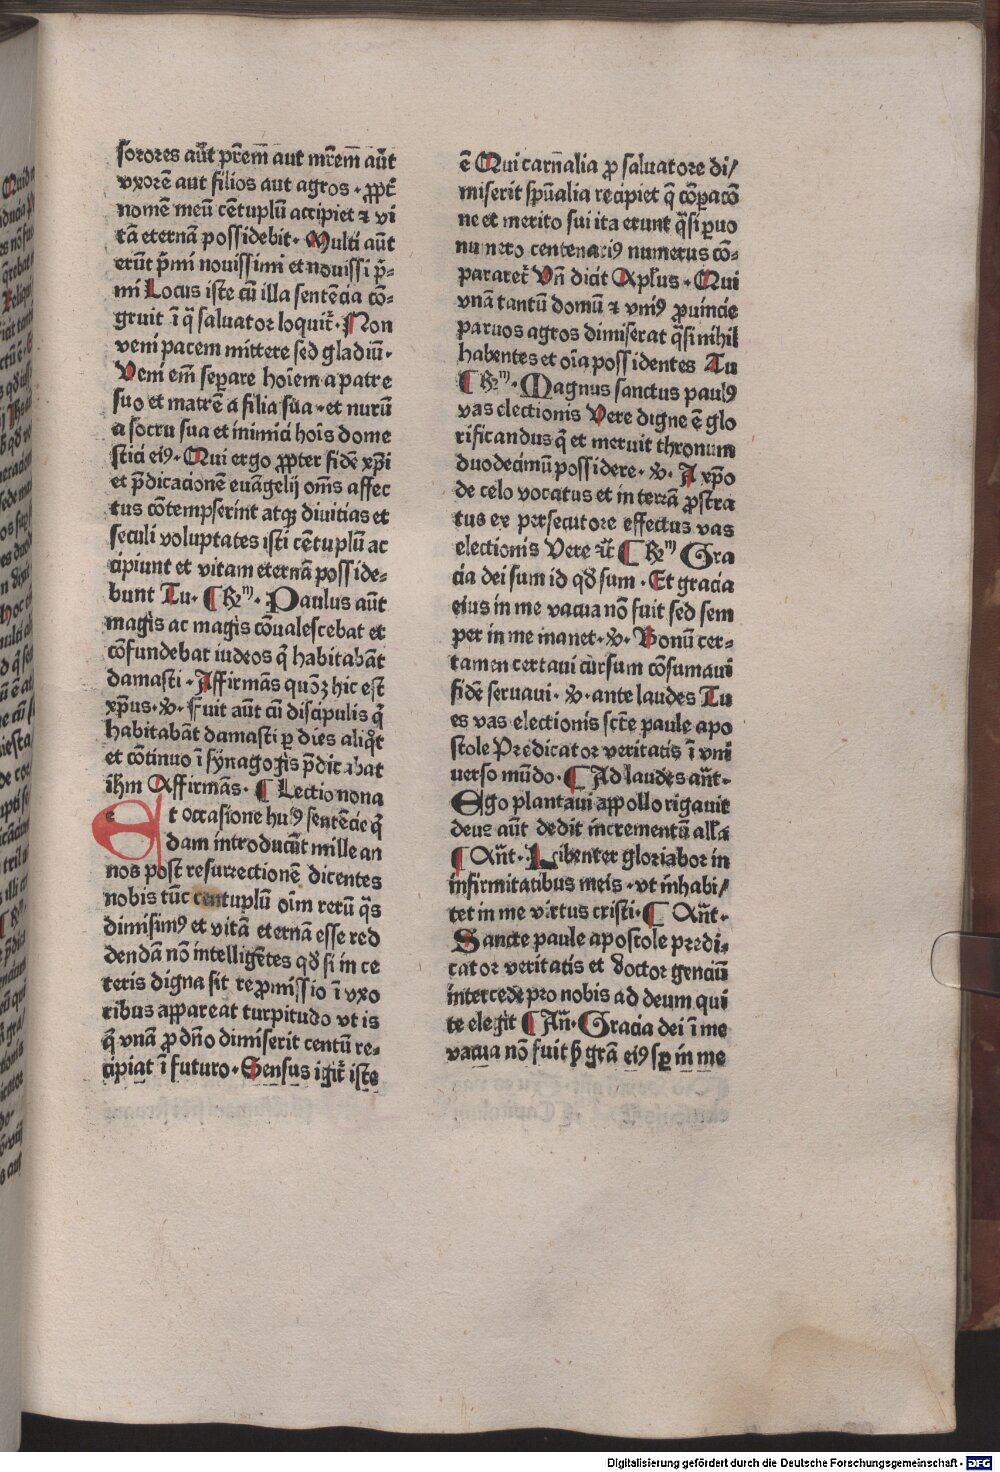 sorores aūt pr̄em aut mr̄em aūt
vxorē aut filios aut agros · ꝓpt̄
nomē meū cētuplū accipiet ⁊ vi
tā eternā possidebit· Multi aūt
erūt p̄mi nouissimi et nouissi p̄⸗
mi Locus iste cū illa sentēcia cō⸗
gruit ī q̄ saluator loquit̄· Non
veni pacem mittere sed gladiū·
Veni em̄ seꝑare hoīem a patre
suo et matrē a filia sua · et nurū
a socru sua et inimici hoīs dome
stici eiꝰ· Qui ergo ꝓpter fidē xp̄i
et p̄dicacionē euāgelij om̄s affec
tus cōtempserint atqꝫ diuitias et
seculi voluptates isti cētuplū ac
cipiunt et vitam eternā posside⸗
bunt Tu· ¶ Rm̄· Paulus aūt
magis ac magis cōualescebat et
cōfundebat iudeos q̄ habitabāt
damasti · Affirmās quōꝫ hic est
xp̄us·v̄· Fuit aūt cū discipulis q̄
habitabāt damasti ꝑ dies aliq̊t
et cōtinuo ī synagogis p̄dicabat
ihm̄ Affirmās· ¶ Lectio nona
Et occasione huꝰ sentēcie q̄
dam introducūt mille an
nos post resurrectionē dicentes
nobis tūc centuplū oīm rerū q̄s
dimisimꝰ et vitā eternā esse red
dendā nō intelligētes qđ si in ce
teris digna sit reꝓmissio ī vxo
ribus appareat turpitudo vt is
q̄ vnā ꝓ dn̄o dimiserit centū re⸗
cipiat ī futuro · Sensus igit̄ iste
ē Qui carnalia ꝓ saluatore di/
miserit spūalia recipiet q̄ cōꝑacō
ne et merito sui ita erunt q̄si ꝑuo
numero centenariꝰ numerus cō⸗
pararet̄ Vn̄ dicit Aplus · Qui
vnā tantū domū ⁊ vniꝰ ꝓuincie
paruos agros dimiserat q̄si nihil
habentes et oīa possidentes Tu
¶ Rm̄· Magnus sanctus paulꝰ
vas electionis Vere digne ē glo
rificandus q̄ et meruit thronum
duodecimū possidere · v̄· A xp̄o
de celo vocatus et in terrā ꝓstra
tus ex persecutore effectus vas
electionis Vere ⁊c̄ ¶ Rm̄ Gra
cia dei sum id qđ sum · Et gracia
eius in me vacua nō fuit sed sem
per in me manet · v̄· Bonū cer⸗
tamen certaui cursum cōsumaui
fidē seruaui · v̄· ante laudes Tu
es vas electionis sct̄e paule apo
stole Predicator veritatis ī vni
uerso mūdo· ¶ Ad laudes an̄t·
Ego plantaui appollo rigauit
deus aūt dedit incrementū alla
¶ An̄t· Libenter gloriabor in
infirmitatibus meis · vt inhabi/
tet in me virtus cristi· ¶ An̄t·
Sancte paule apostole predi⸗
cator veritatis et doctor genciū
intercede pro nobis ad deum qui
te elegit ¶ An̄· Gracia dei ī me
vacua nō fuit ꝧ gr̄a eiꝰ sꝑ in me
Digitalisierung gefördert durch die Deutsche Forschungsgemeinschaft - DFG